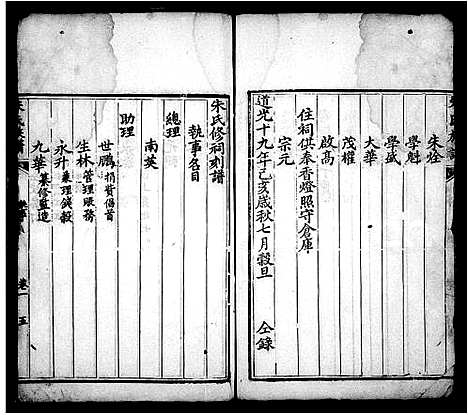 朱烇
學魁
學盛
大華
茂權
啟高
住祠供奉香燈照守倉庫
宗元
道光十九年己亥歲秋七月穀旦 仝錄
朱氏修祠刻譜
執事名目
總理
南英
助理
世鵬 捐貲倡首
生林 管理賬務
永升 兼理錢穀
九華 纂修監造
卷一 五